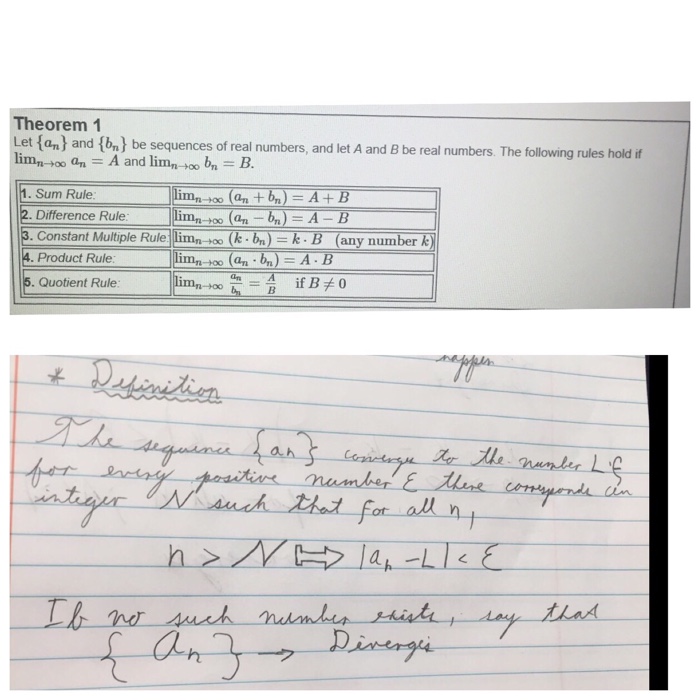 Theorem 1
Let {aₙ} and {bₙ} be sequences of real numbers, and let A and B be real numbers. The following rules hold if
limₙ→∞ aₙ = A and limₙ→∞ bₙ = B.
1. Sum Rule: limₙ→∞ (aₙ + bₙ) = A + B
2. Difference Rule: limₙ→∞ (aₙ − bₙ) = A − B
3. Constant Multiple Rule: limₙ→∞ (k · bₙ) = k · B (any number k)
4. Product Rule: limₙ→∞ (aₙ · bₙ) = A · B
5. Quotient Rule: limₙ→∞ aₙ/bₙ = A/B if B ≠ 0
happen
* Definition
The sequence {an} converges to the number L if
for every positive number ε there corresponds an
integer N such that for all n,
n > N ⟹ |aₙ − L| < ε
If no such number exists, say that
{aₙ} → Diverges